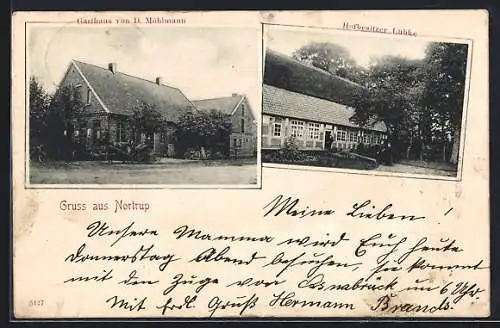 Gasthaus von D. Mühlmann
Hofbesitzer Lübke
Gruss aus Nortrup
Meine Lieben!
Unsere Mamma wird Euch heute
Donnerstag Abend besuchen, sie kommt
mit den Zuge von Osnabrück um 6 Uhr
Mit frdl. Gruß Hermann Brands.
5127